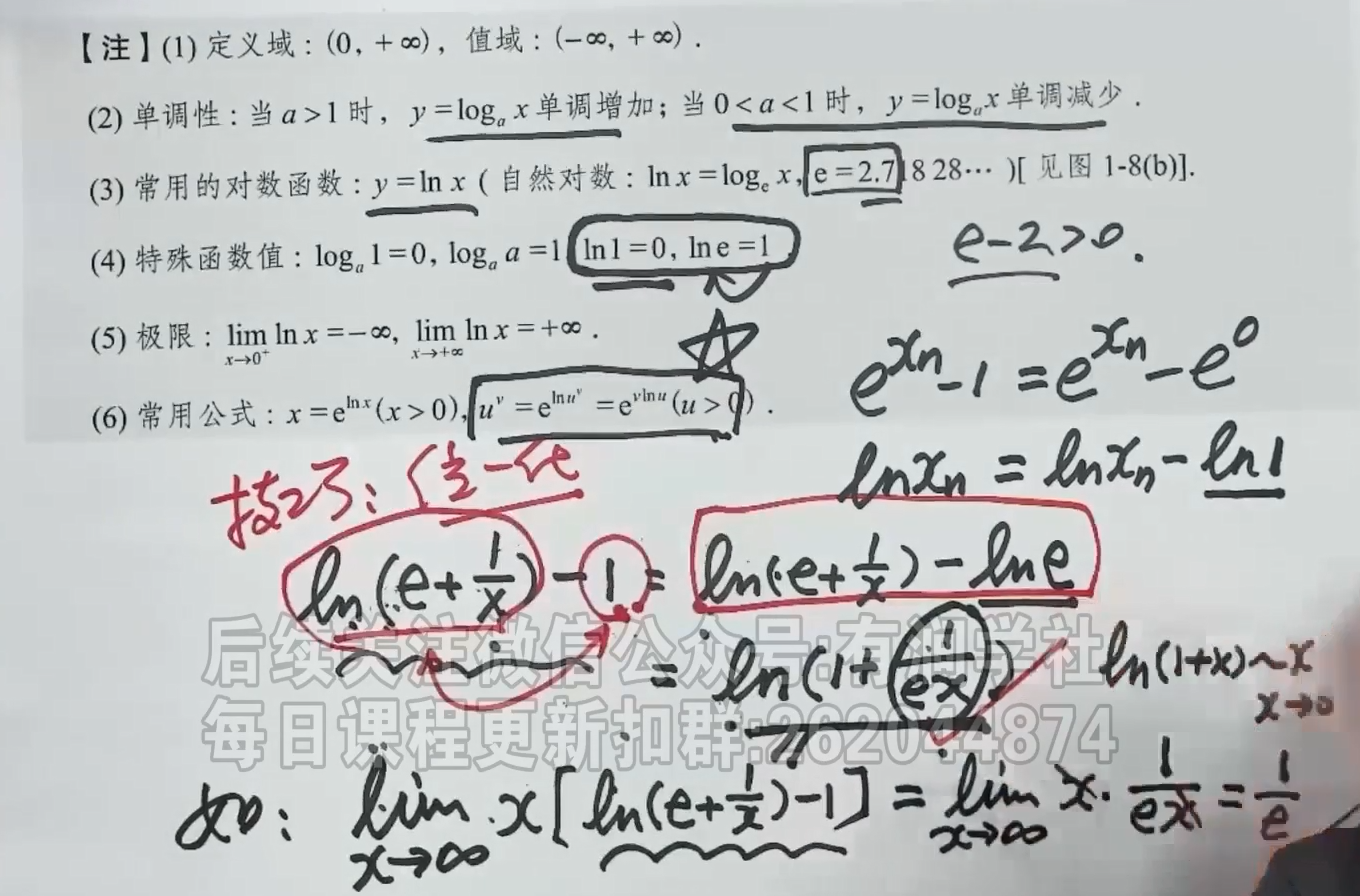 【注】(1) 定义域：(0, +∞)，值域：(-∞, +∞).
(2) 单调性：当 a>1 时，y=logₐ x 单调增加；当 0<a<1 时，y=logₐ x 单调减少.
(3) 常用的对数函数：y=ln x (自然对数：ln x=logₑ x, e=2.71828⋯)[见图 1-8(b)].
(4) 特殊函数值：logₐ 1=0, logₐ a=1, ln 1=0, ln e=1
e-2>0.
(5) 极限：lim_{x→0⁺} ln x=-∞, lim_{x→+∞} ln x=+∞.
e^{xₙ}-1=e^{xₙ}-e⁰
(6) 常用公式：x=e^{ln x}(x>0), u^v=e^{ln u^v}=e^{v ln u}(u>0).
ln xₙ = ln xₙ - ln 1
技巧：
ln(e+1/x)-1=ln(e+1/x)-ln e
=ln(1+1/(ex))
ln(1+x)~x
x→0
后续关注微信公众号:有润学社
每日课程更新扣群:262044874
如：lim_{x→∞} x[ln(e+1/x)-1]=lim_{x→∞} x·1/(ex)=1/e